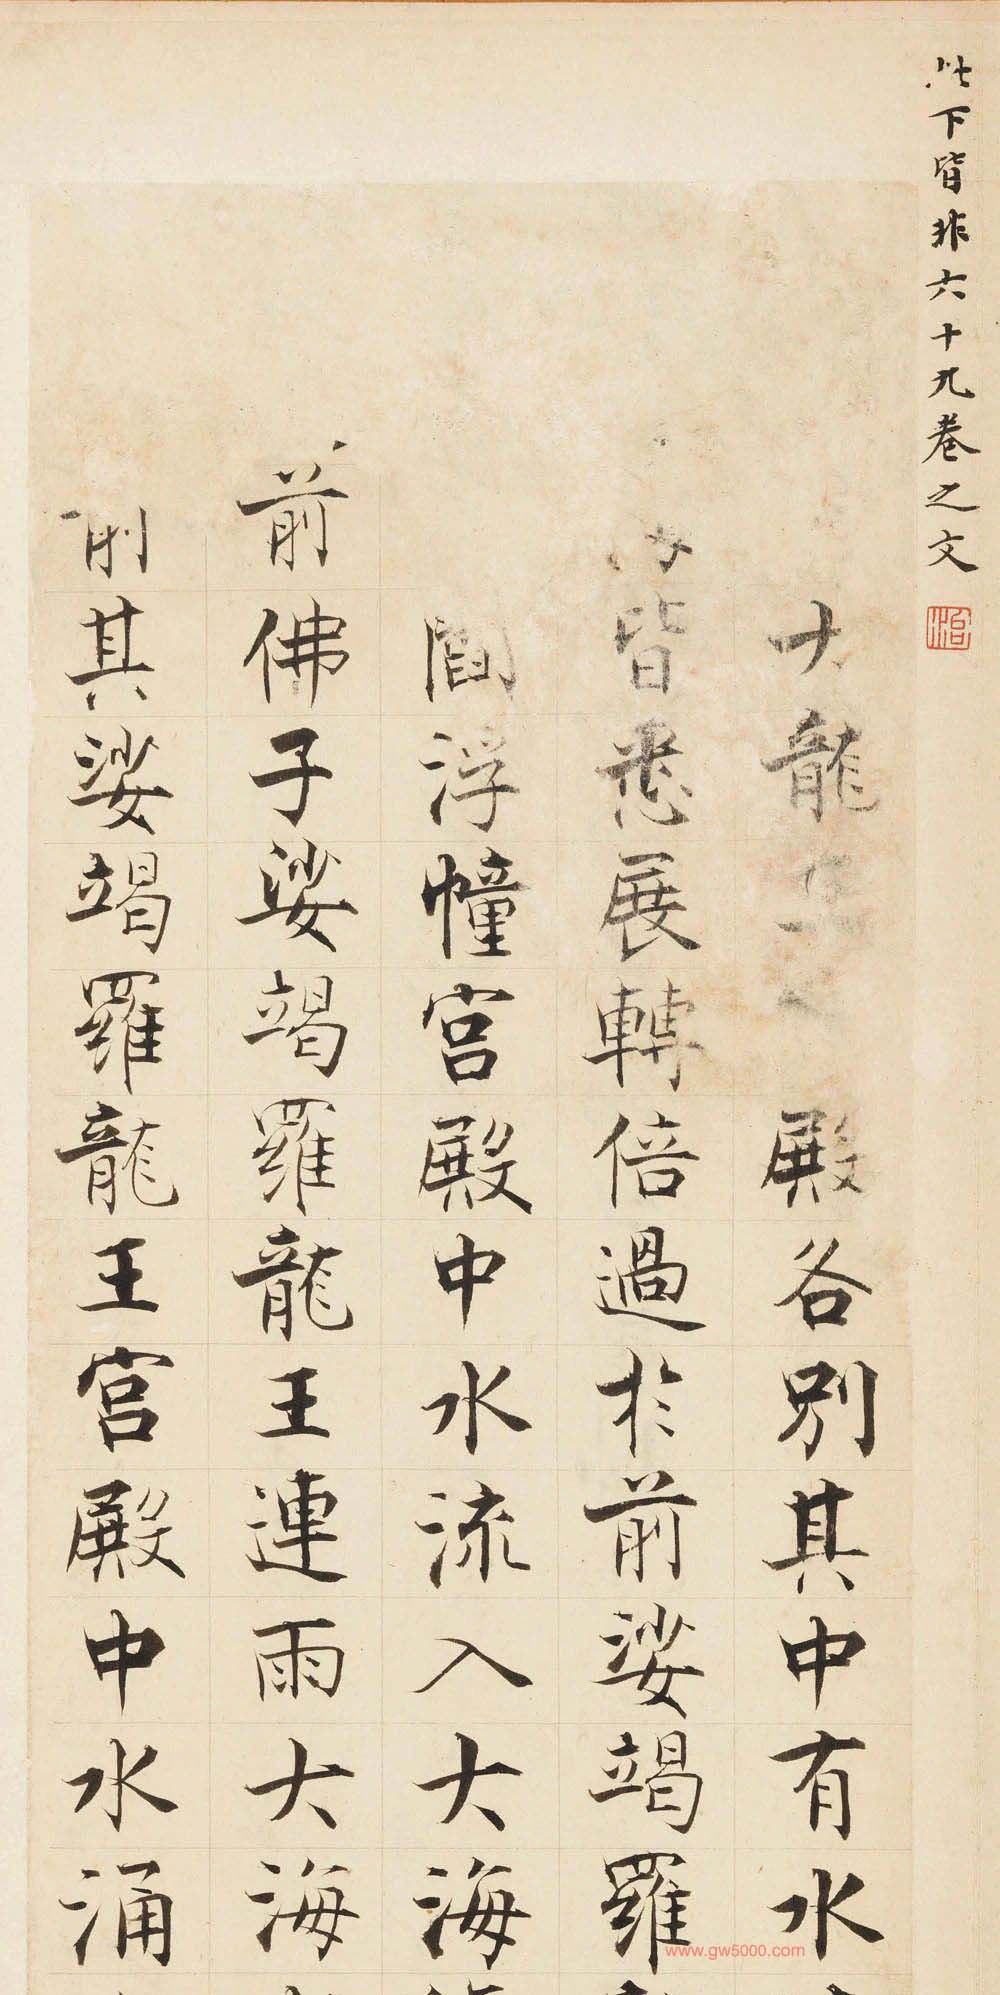 此下皆非六十九卷之文
大龍 殿各別其中有水
皆悉展轉倍過於前娑竭羅
閻浮幢宮殿中水流入大海
前佛子娑竭羅龍王連雨大海
前其娑竭羅龍王宮殿中水涌
www.gw5000.com